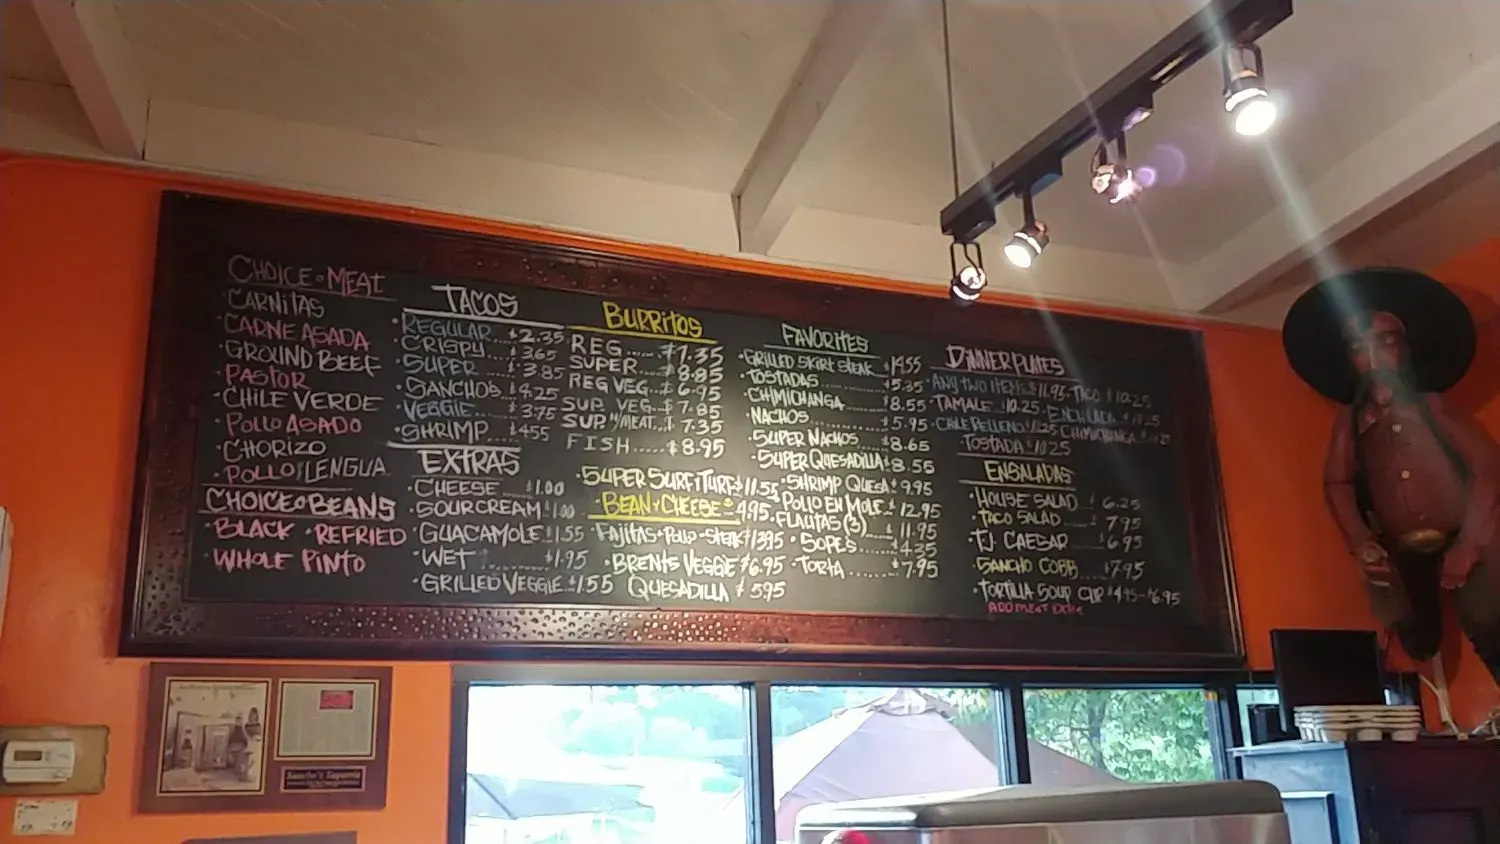 CHOICE OF MEAT
• CARNITAS
• CARNE ASADA
• GROUND BEEF
• PASTOR
• CHILE VERDE
• POLLO ASADO
• CHORIZO
• POLLO/LENGUA
CHOICE OF BEANS
• BLACK • REFRIED
• WHOLE PINTO
TACOS
• REGULAR $2.35
• CRISPY $3.65
• SUPER $3.85
• SANCHOS $4.25
• VEGGIE $3.75
• SHRIMP $4.55
EXTRAS
• CHEESE $1.00
• SOUR CREAM $1.00
• GUACAMOLE $1.55
• WET $1.95
• GRILLED VEGGIE $1.55
BURRITOS
REG $7.35
SUPER $8.85
REG VEG $6.95
SUP VEG $7.85
SUP W/MEAT $7.35
FISH $8.95
• SUPER SURF/TURF $11.55
• BEAN & CHEESE 4.95
• FAJITAS • POLLO • STEAK $13.95
• BRENTS VEGGIE $6.95
QUESADILLA $5.95
FAVORITES
• GRILLED SKIRT STEAK $14.55
• TOSTADAS $5.35
• CHIMICHANGA $8.55
• NACHOS $5.95
• SUPER NACHOS $8.65
• SUPER QUESADILLA $8.55
• SHRIMP QUESA $9.95
POLLO EN MOLE $12.95
• FLAUTAS (3) $11.95
• SOPES $4.35
• TORTA $7.95
DINNER PLATES
• ANY TWO ITEMS $11.95 • TACO $10.25
• TAMALE $10.25 • ENCHILADA
• CHILE RELLENO CHIMICHANGA
• TOSTADA $10.25
ENSALADAS
• HOUSE SALAD $6.25
• TACO SALAD $7.95
• TJ CAESAR $6.95
• SANCHO COBB $7.95
• TORTILLA SOUP CUP $4.95 - $6.95
ADD MEAT EXTRA
Sancho's Taqueria